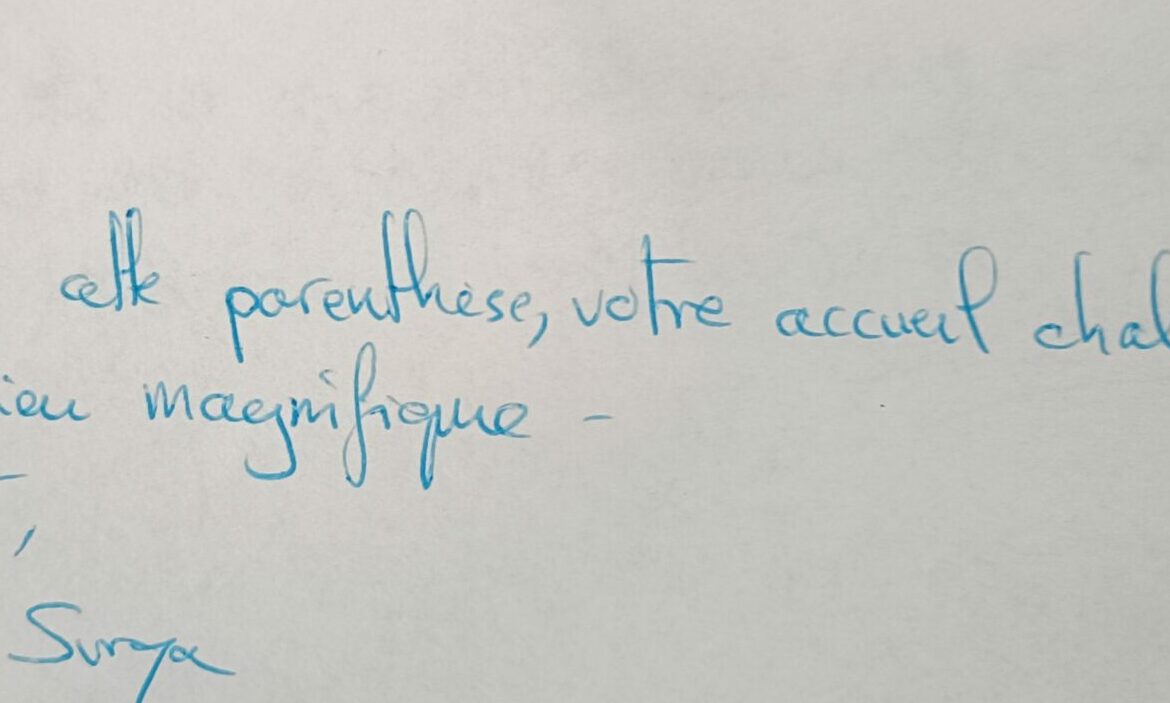 cette parenthèse, votre accueil chal
ieu magnifique -
Surya